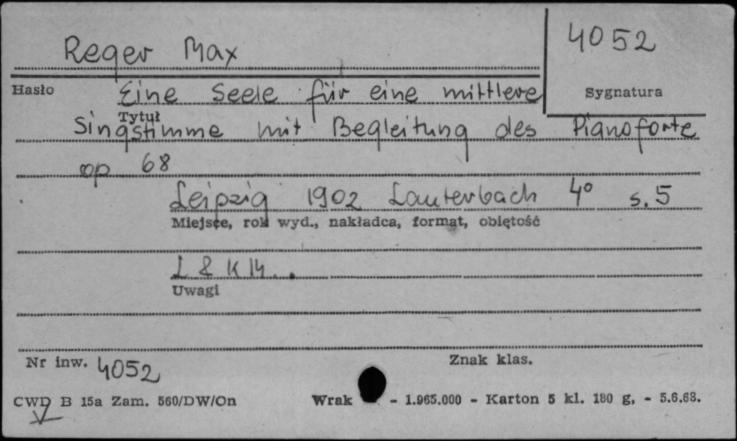 Reger Max
4052
Hasło
Eine Seele für eine mittlere
Sygnatura
Tytuł
Singstimme mit Begleitung des Pianoforte
op 68
Leipzig 1902 Lauterbach 4° s. 5
Miejsce, rok wyd., nakładca, format, obiętość
L & K 14
Uwagi
Nr inw. 4052
Znak klas.
CWD B 15a Zam. 560/DW/On Wrak - 1.965.000 - Karton 5 kl. 180 g, - 5.6.68.